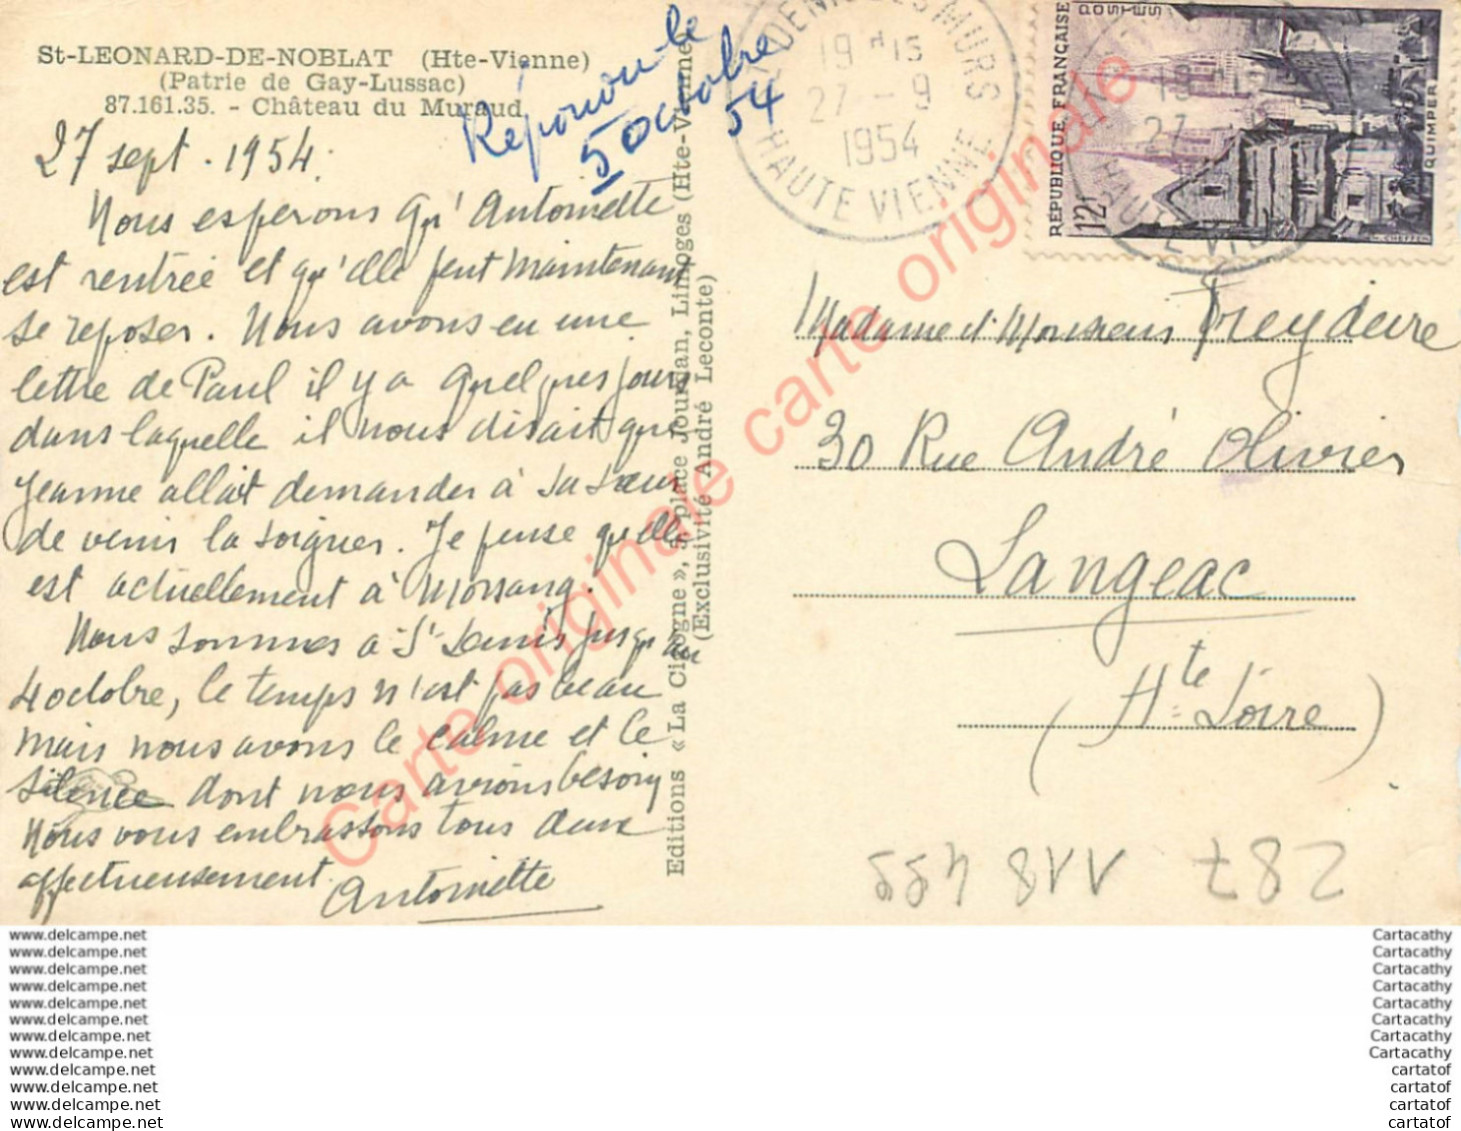 St-LEONARD-DE-NOBLAT (Hte-Vienne)
(Patrie de Gay-Lussac)
87.161.35. - Château du Muraud
27 sept. 1954.
Nous esperons qu'Antoinette
est rentrée et qu'elle peut maintenant
se reposer. Nous avons eu une
lettre de Paul il y a quelques jours
dans laquelle il nous disait que
Jeanne allait demander à sa sœur
de venir la soigner. Je pense qu'elle
est actuellement à Morsang.
Nous sommes à St Denis jusqu'au
4 octobre, le temps n'est pas beau
mais nous avons le calme et le
silence dont nous avions besoin
Nous vous embrassons tous deux
affectueusement.
Antoinette
Répondu le
5 octobre
54
Editions « La Cigogne », 5, place Jourdan, Limoges (Hte-Vienne)
(Exclusivité André Leconte)
DENIS DES MURS
19 H 15
27 - 9
1954
HAUTE VIENNE
POSTES
RÉPUBLIQUE FRANÇAISE
12f
QUIMPER
19
27
HAUTE VIE
Madame et Monsieur Freydeire
30 Rue André Olivier
Langeac
(Hte Loire)
287 118 455
Carte originale carte originale carte originale
www.delcampe.net Cartacathy
www.delcampe.net Cartacathy
www.delcampe.net Cartacathy
www.delcampe.net Cartacathy
www.delcampe.net Cartacathy
www.delcampe.net Cartacathy
www.delcampe.net Cartacathy
www.delcampe.net Cartacathy
www.delcampe.net cartatof
www.delcampe.net cartatof
www.delcampe.net cartatof
www.delcampe.net cartatof